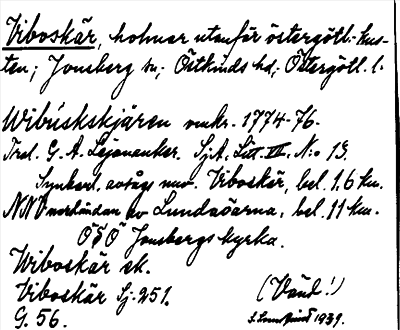 Viboskär, holmar utanför östergötl.-kus-
ten; Jonsberg sn; Östkinds hd; Östergötl. l.
Wibŭskskjären omkr. 1774-76.
G. A. Lejonanker. Sj.A. Litt. VI. N:o 13.
avsågs nuv. Viboskär, bel. 1,6 km.
NNO nordändan av Lundaöarna, bel. 11 km.
ÖSÖ Jonsbergs kyrka.
Wiboskär ek.
Viboskär Sj. 251.
(Vänd!)
G. 56.
1939.